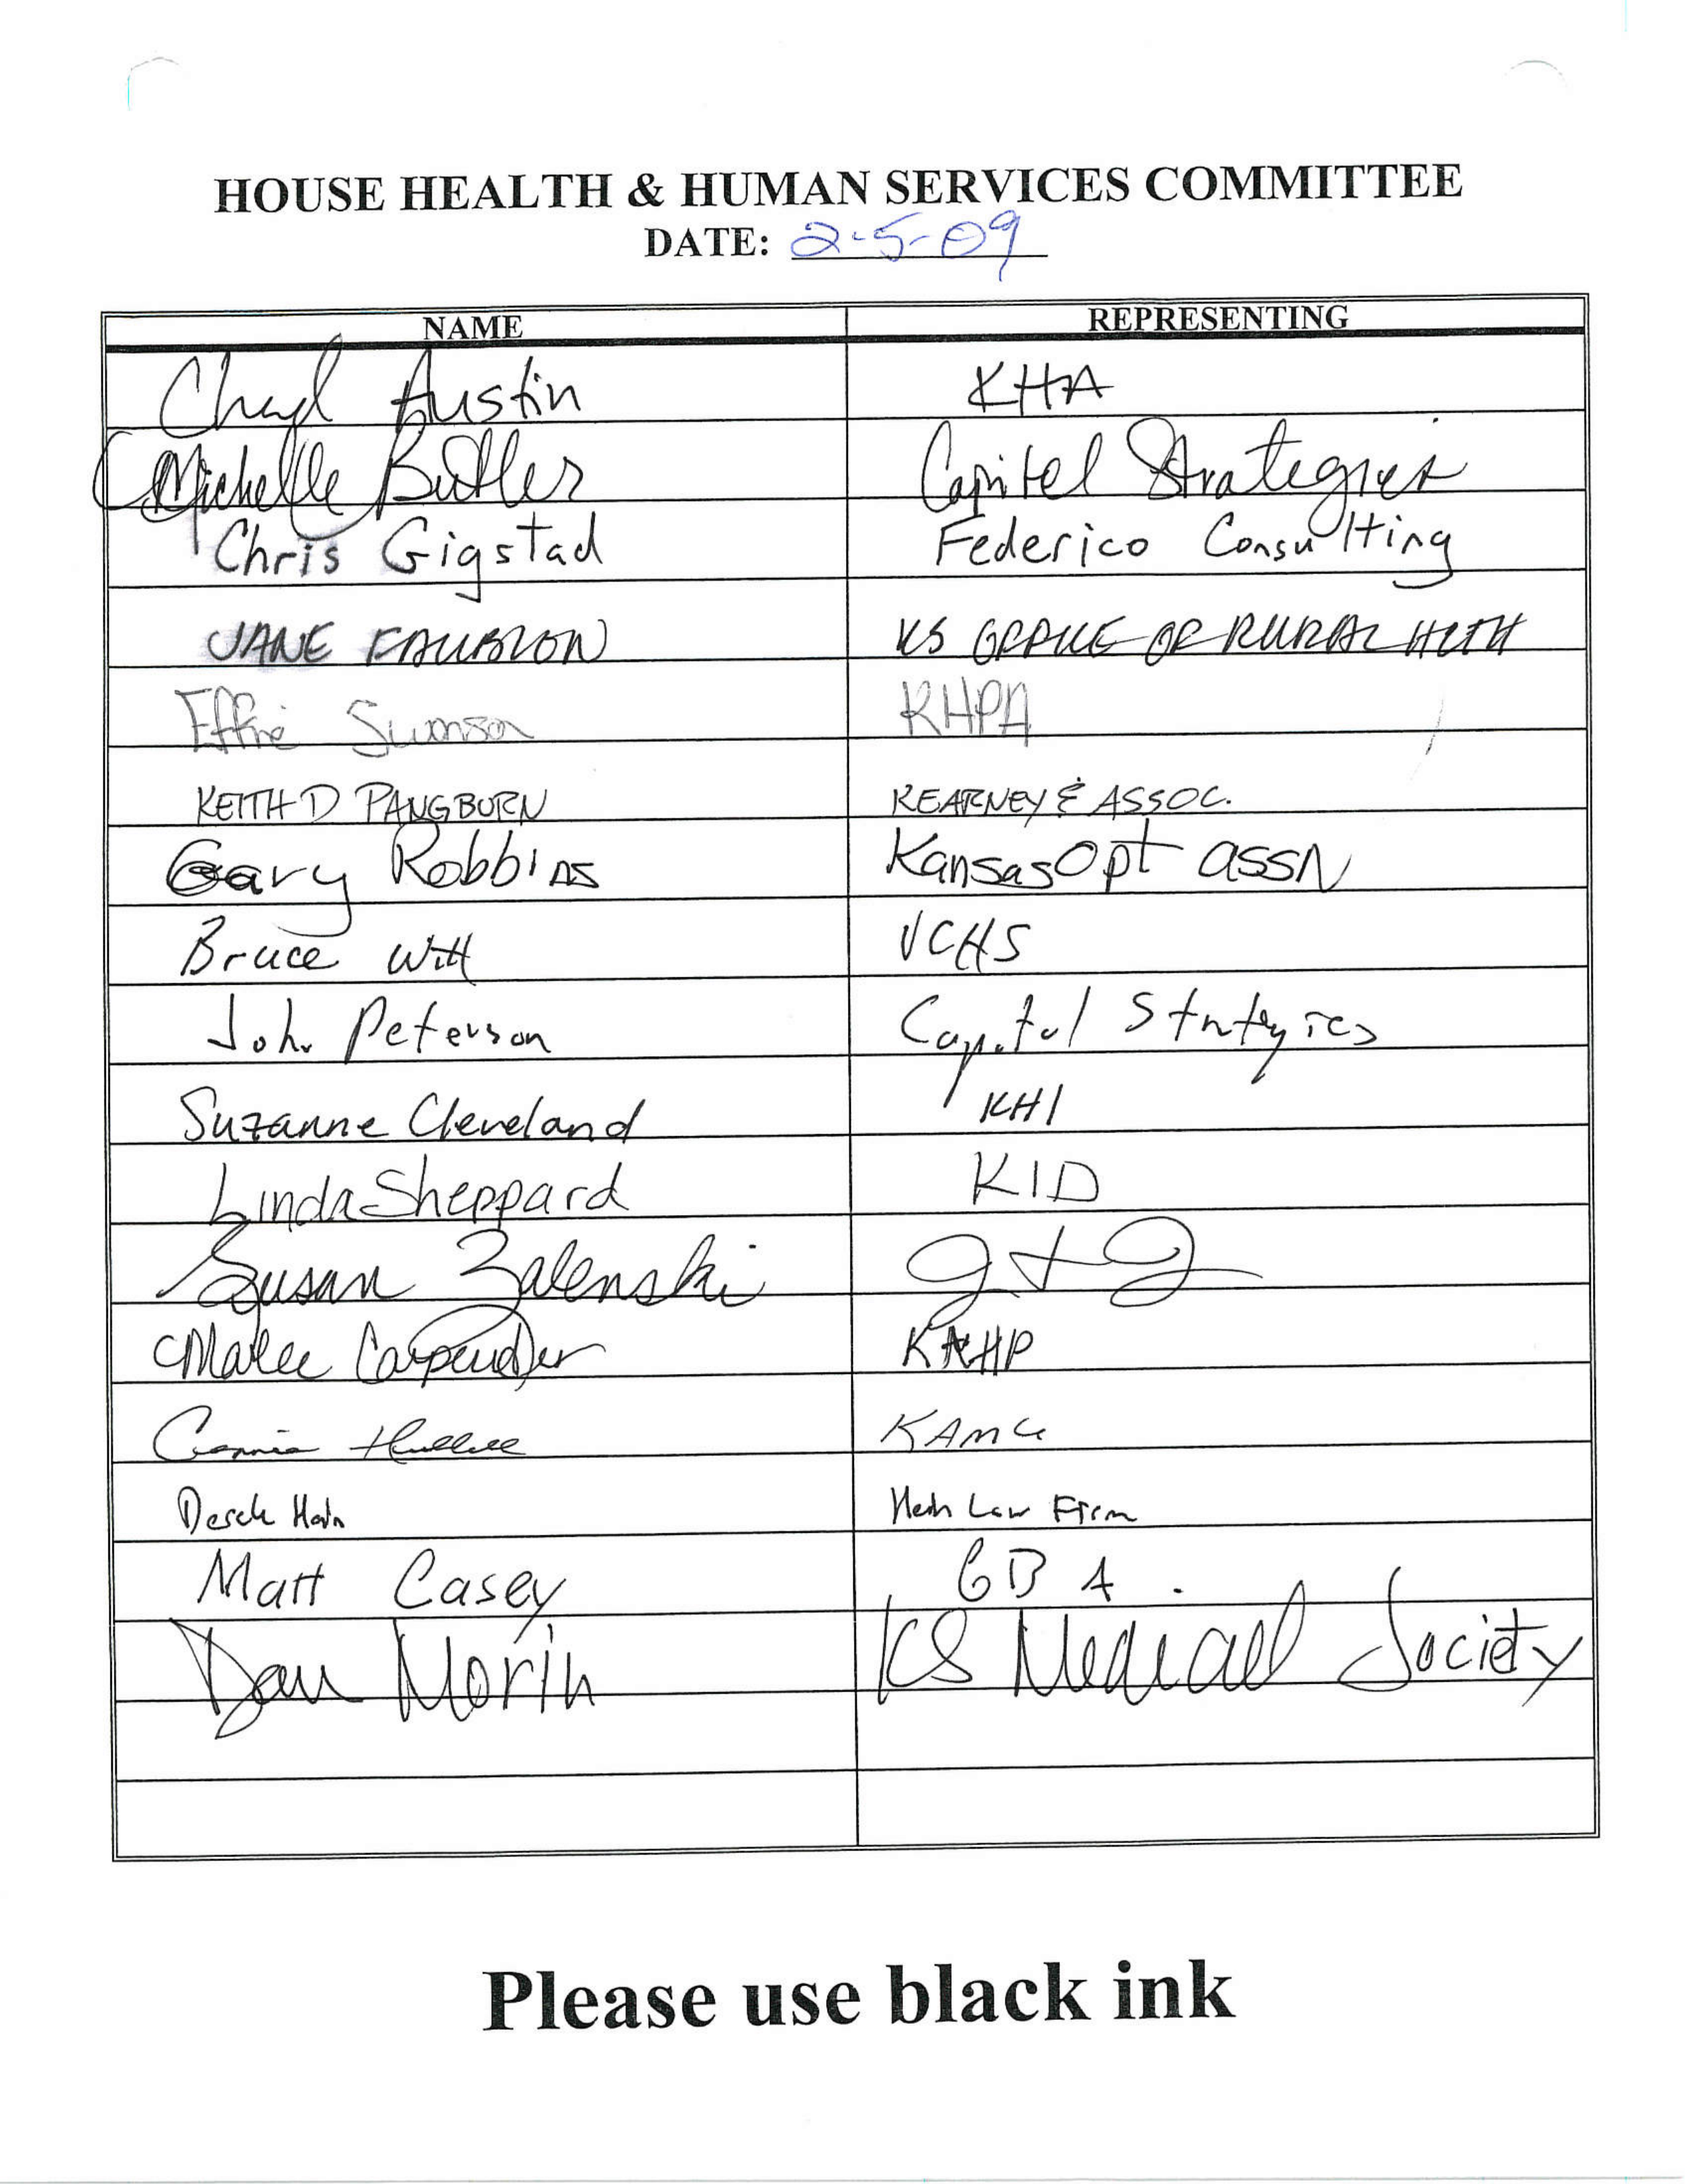 HOUSE HEALTH & HUMAN SERVICES COMMITTEE
DATE: 2-5-09
NAME REPRESENTING
Cheryl Austin KHA
Michelle Butler Capitol Strategies
Chris Gigstad Federico Consulting
JANE FAUBION KS OFFICE OF RURAL HLTH
Effie Swanson KHPA
KEITH D PANGBURN KEARNEY & ASSOC.
Gary Robbins Kansas Opt assn
Bruce Witt VCHS
John Peterson Capitol Strategies
Suzanne Cleveland KHI
Linda Sheppard KID
Susan Zalenski J+J
Marlee Carpenter KAHP
KAMU
Derek Hein Hein Law Firm
Matt Casey GBA
Dan Morin KS Medical Society
Please use black ink